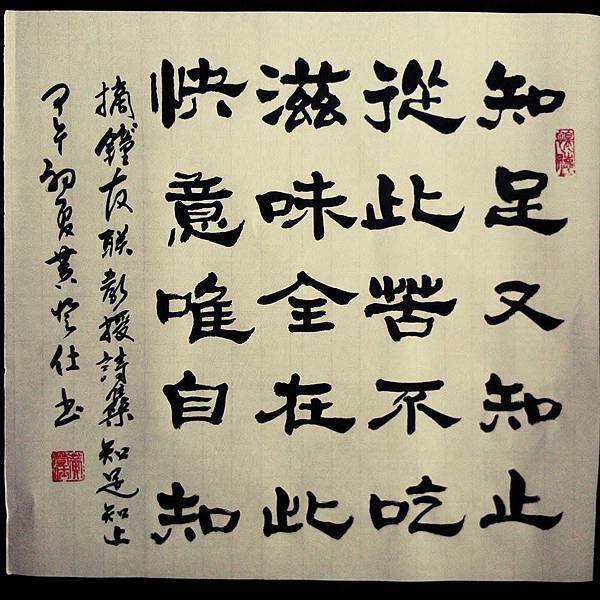 知足又知止
從此苦不吃
滋味全在此
快意唯自知
摘鐘友聯教授詩集知足知止
甲午初夏黃登仕書